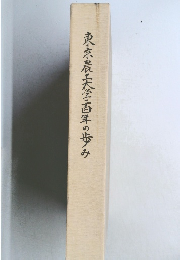 東京農工大学百年の歩み